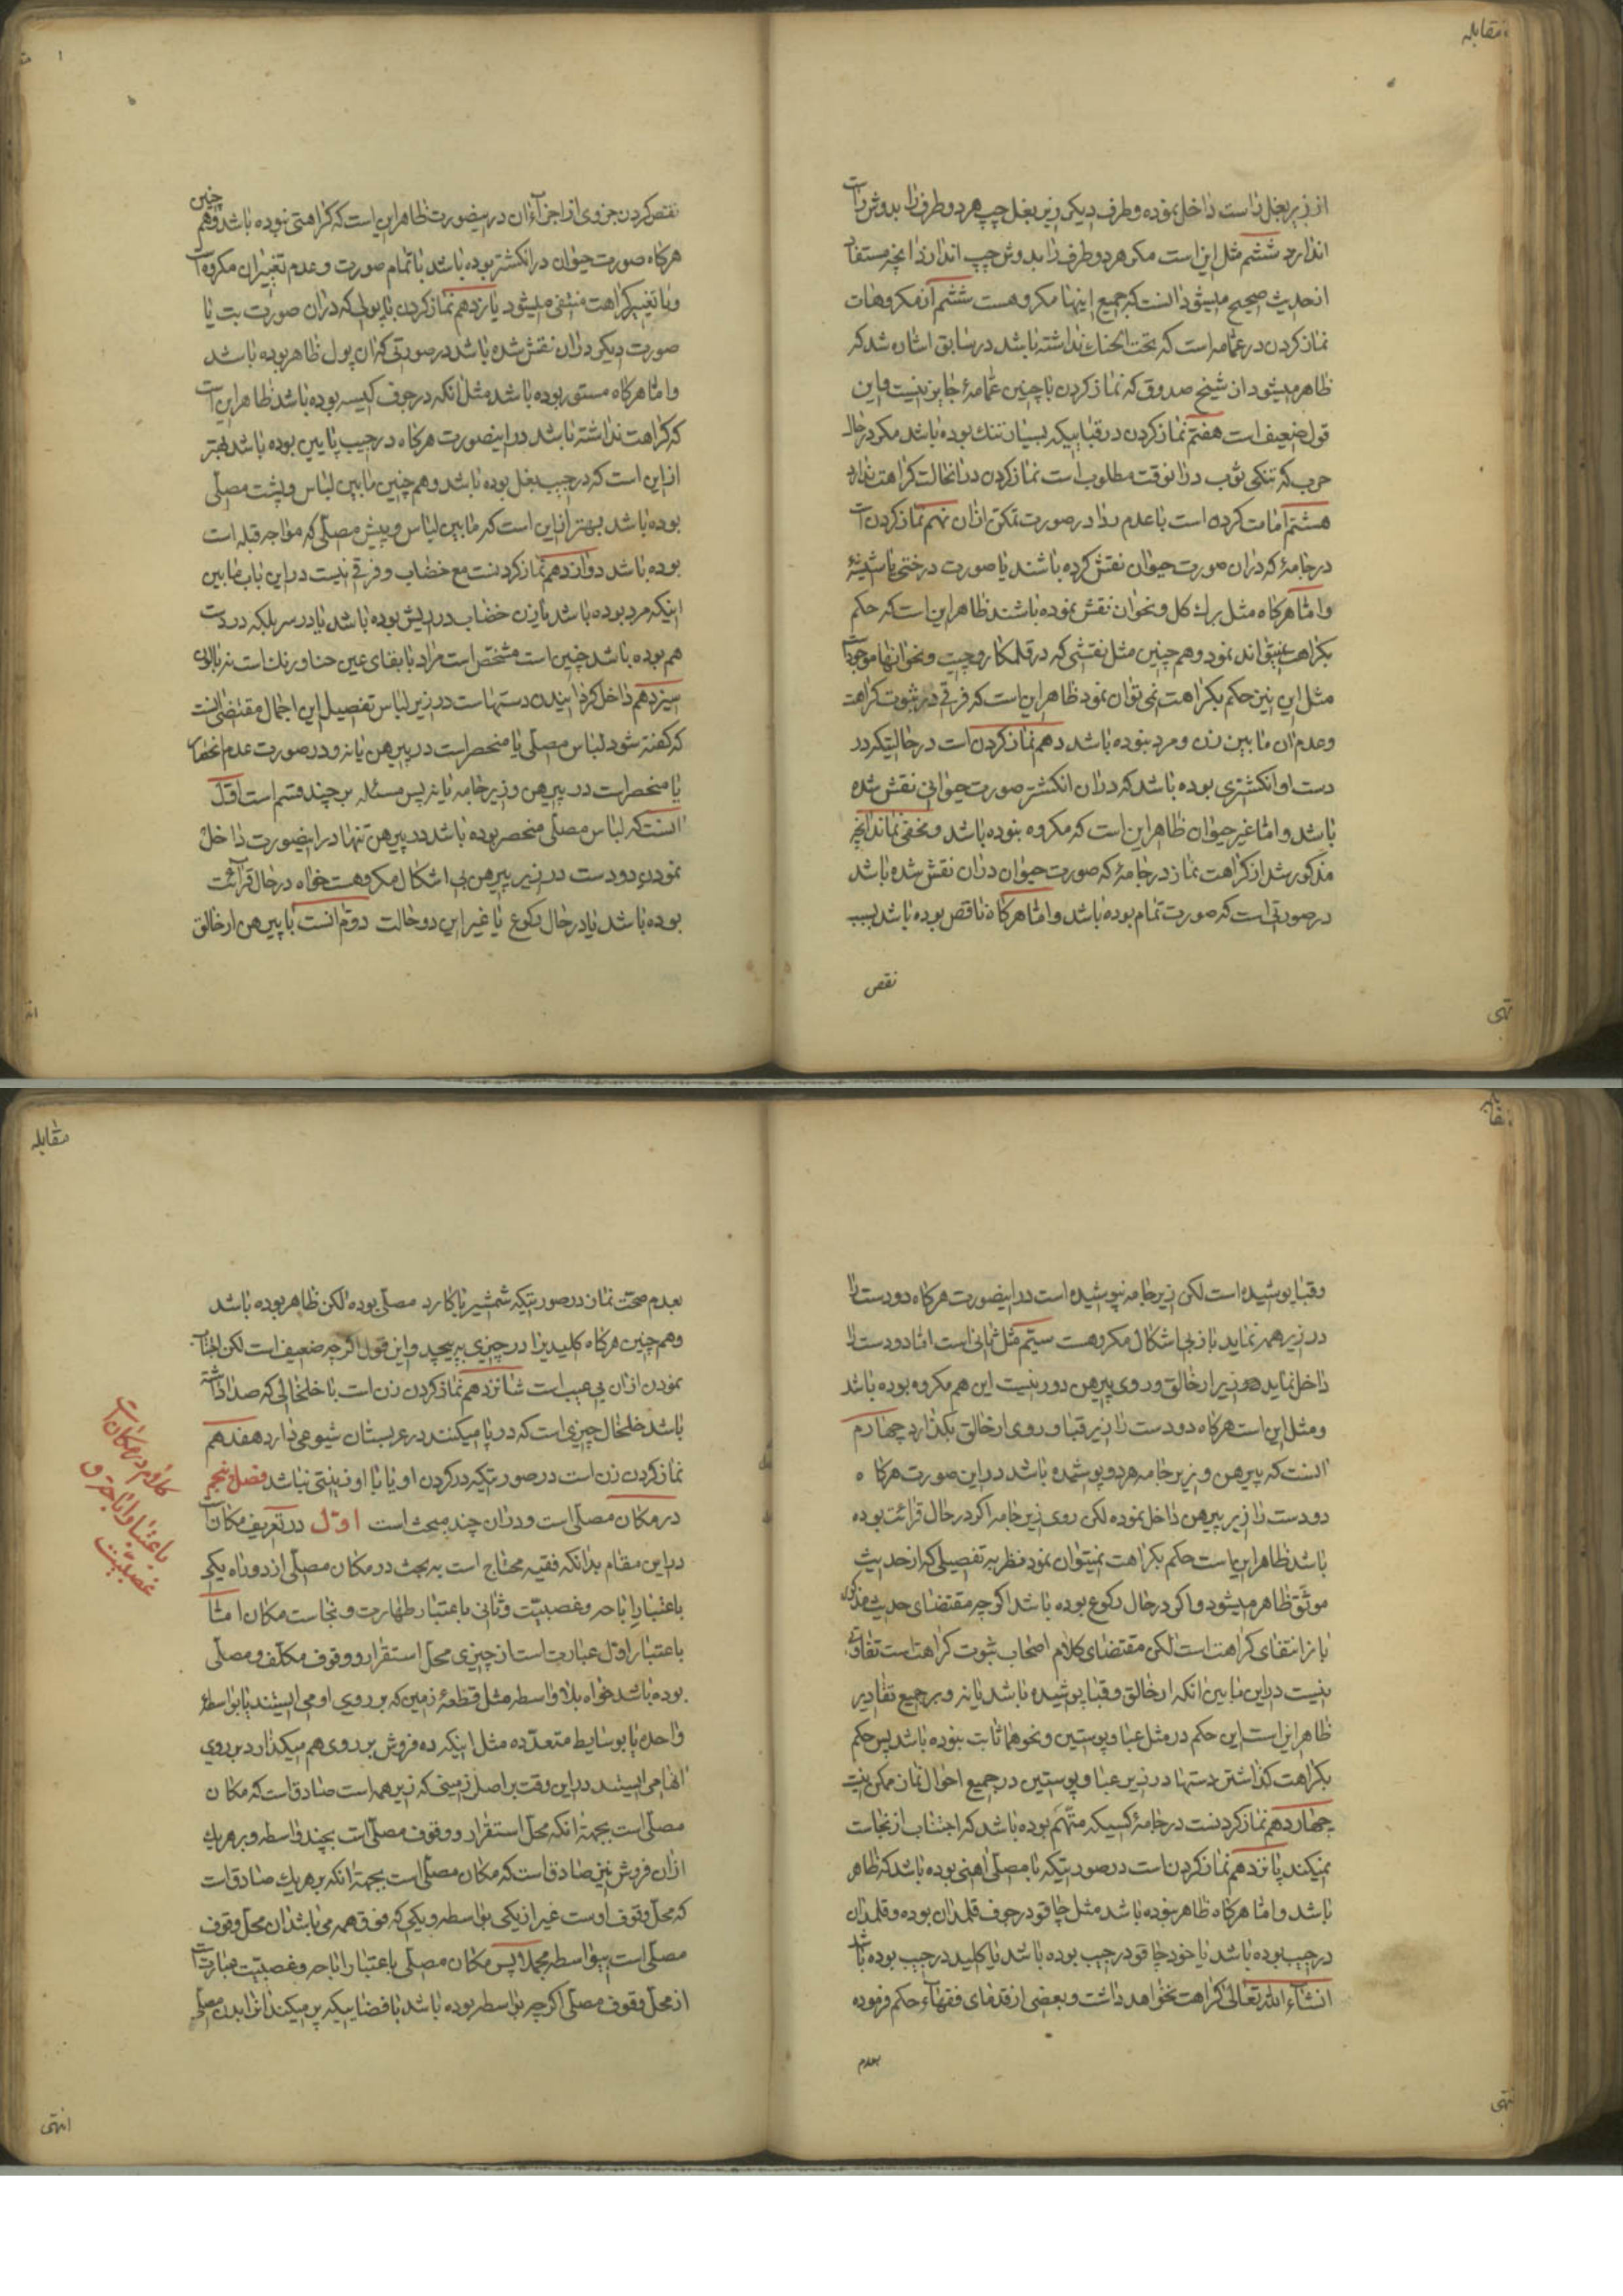 مقابله
از زیر بغل راست داخل نموده و طرف دیکر زیر بغل چپ هر دو طرف را بدوش راست
اندازد ششم مثل این است مکر هر دو طرف را بدوش چپ اندازد انچه مستفاد
از حدیث صحیح میشود انست که جمیع اینها مکروهست ششم از مکروهات
نماز کردن در عمامه است که تحت الحنک نداشته باشد در سابق اشاره شد که
ظاهر میشود از شیخ صدوق که نماز کردن با چنین عمامهٔ جایز نیست و این
قول ضعیف است هفتم نماز کردن در قبائیکه بسیار تنک بوده باشد مکر در حال
حرب که تنکی ثوب در انوقت مطلوب است نماز کردن در انحالت کراهت ندارد
هشتم امامت کردن است با عدم ردا در صورت تمکن ازان نهم نماز کردن است
در جامهٔ که دران صورت حیوان نقش کرده باشند یا صورت درختی باشد
و اما هرکاه مثل برک کل و نحو ان نقش نموده باشند ظاهر این است که حکم
بکراهت نمیتواند نمود و هم چنین مثل نقشی که در قلمکار و چیت و نحو انها موجود است
مثل این نیز حکم بکراهت نمی توان نمود ظاهر این است که فرقی در ثبوت کراهت
و عدم ان مابین زن و مرد نبوده باشد دهم نماز کردن است در حالتیکه در
دست او انکشتری بوده باشد که دران انکشتر صورت حیوانی نقش شده
باشد و اما غیر حیوان ظاهر این است که مکروه نبوده باشد و مخفی نماند انچه
مذکور شد از کراهت نماز در جامهٔ که صورت حیوان دران نقش شده باشد
در صورتی است که صورت تمام بوده باشد و اما هرکاه ناقص بوده باشد بسبب
نقص
نقص کردن جزوی از اجزآء ان در اینصورت ظاهر این است که کراهتی نبوده باشد و هم چنین
هرکاه صورت حیوان در انکشتر بوده باشد با تمام صورت و عدم تغییر ان مکروه است
و با تغییر کراهت منتفی میشود یازدهم نماز کردن با پولی که دران صورت بت یا
صورت دیکر دران نقش شده باشد در صورتی که ان پول ظاهر بوده باشد
و اما هرکاه مستور بوده باشد مثل انکه در جوف کیسه بوده باشد ظاهر این است
که کراهت نداشته باشد در اینصورت هرکاه در جیب پائین بوده باشد بهتر
از این است که در جیب بغل بوده باشد و هم چنین مابین لباس و پشت مصلی
بوده باشد بهتر از این است که مابین لباس و پیش مصلی که مواجه قبله است
بوده باشد دوازدهم نماز کردنست مع خضاب و فرقی نیست در این باب مابین
اینکه مرد بوده باشد یا زن خضاب در ریش بوده باشد یا در سر بلکه در دست
هم بوده باشد چنین است مشخص است مراد با بقای عین حنا و رنک است نه بالون
سیزدهم داخل کردانیدن دستهاست در زیر لباس تفصیل این اجمال مقتضی انست
که کفته شود لباس مصلی یا منحصر است در پیرهن یا نه و در صورت عدم انحصار
یا منحصر است در پیرهن و زیرجامه یا نه پس مسئله بر چند قسم است اول
انست که لباس مصلی منحصر بوده باشد در پیرهن تنها در اینصورت داخل
نمودن دو دست در زیر پیرهن بی اشکال مکروهست خواه در حال قرائت
بوده باشد یا در حال رکوع یا غیر این دو حالت دوم انست با پیرهن ارخالق
و قبا پوشیده است لکن زیرجامه نپوشیده است در اینصورت هرکاه دو دست را
در زیر همه نماید باز بی اشکال مکروهست سیم مثل ثانی است اما دو دست را
داخل نماید در زیر ارخالق و روی پیرهن دور نیست این هم مکروه بوده باشد
و مثل این است هرکاه دو دست را زیر قبا و روی ارخالق بکذارد چهارم
انست که پیرهن و زیرجامه هر دو پوشیده باشد در این صورت هرکاه
دو دست را زیر پیرهن داخل نموده لکن روی زیرجامه اکر در حال قرائت بوده
باشد ظاهر این است حکم بکراهت نمیتوان نمود نظر به تفصیلی که از حدیث
موثق ظاهر میشود و اکر در حال رکوع بوده باشد اکر چه مقتضای حدیث مذکور
باز انتفای کراهت است لکن مقتضای کلام اصحاب ثبوت کراهت است تفاوتی
نیست در این مابین انکه ارخالق و قبا پوشیده باشد یا نه و بر جمیع تقادیر
ظاهر این است این حکم در مثل عبا و پوستین و نحوهما ثابت نبوده باشد پس حکم
بکراهت کذاشتن دستها در زیر عبا و پوستین در جمیع احوال نماز ممکن نیست
چهاردهم نماز کردنست در جامهٔ کسیکه متهم بوده باشد که اجتناب از نجاست
نمیکند پانزدهم نماز کردن است در صورتیکه با مصلی اهنی بوده باشد که ظاهر
باشد و اما هرکاه ظاهر نبوده باشد مثل چاقو در جوف قلمدان بوده و قلمدان
در جیب بوده باشد یا خود چاقو در جیب بوده باشد یا کلید در جیب بوده باشد
انشآء الله تعالی کراهت نخواهد داشت و بعضی از قدمای فقهآء حکم فرموده
بعدم
مقابله
بعدم صحت نماز در صورتیکه شمشیر یا کارد مصلی بوده لکن ظاهر بوده باشد
و هم چنین هرکاه کلیدیرا در چیزی بپیچد و این قول اکر چه ضعیف است لکن اجتناب
نمودن ازان بی عیب است شانزدهم نماز کردن زن است با خلخالی که صدا داشته
باشد خلخال چیزی است که در پا میکنند در عربستان شیوعی دارد هفدهم
نماز کردن زن است در صورتیکه در کردن او یا با او زینتی نباشد فصل پنجم
در مکان مصلی است و دران چند مبحث است اول در تعریف مکان است
در این مقام بدانکه فقیه محتاج است به بحث در مکان مصلی از دو راه یکی
باعتبار اباحه و غصبیت و ثانی باعتبار طهارت و نجاست مکان اما
باعتبار اول عبارت است از چیزی محل استقرار و وقوف مکلف و مصلی
بوده باشد خواه بلا واسطه مثل قطعهٔ زمین که بر روی او می ایستند یا بواسطه
واحده یا بوسایط متعدده مثل اینکه ده فروش بر روی هم میکذارد بر روی
انها می ایستند در این وقت بر اصل زمینی که زیر همه است صادق است که مکان
مصلی است بجهة انکه محل استقرار و وقوف مصلی است بچند واسطه و بر هر یک
ازان فروش نیز صادق است که مکان مصلی است بجهة انکه بر هر یک صادق است
که محل وقوف اوست غیر از یکی بواسطه و یکی که فوق همه می باشد ان محل وقوف
مصلی است بیواسطه مجملا پس مکان مصلی باعتبار اباحه و غصبیت عبارت است
از محل وقوف مصلی اکر چه بواسطه بوده باشد با فضائیکه پر میکند انرا بدن مصلی
کلام در مکان است
باعتبار اباحه و
غصبیت
انتهی